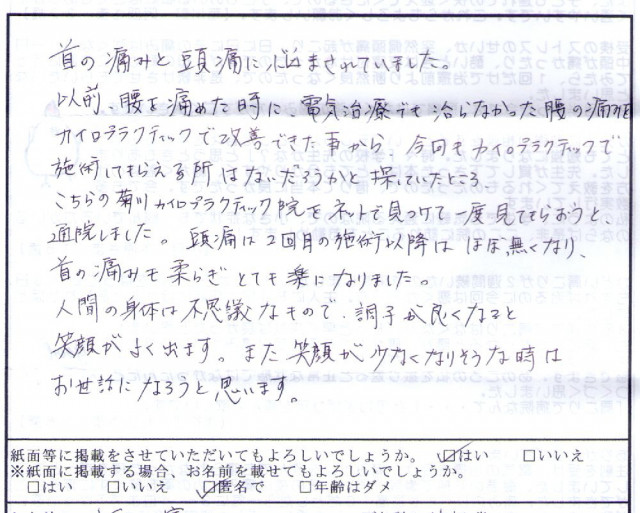 首の痛みと頭痛に悩まされていました。
以前、腰を痛めた時に、電気治療でも治らなかった腰の痛みが
カイロプラクティックで改善できた事から、今回もカイロプラクティックで
施術してもらえる所はないだろうかと探していたところ、
こちらの菊川カイロプラクティック院をネットで見つけて一度見てもらおうと、
通院しました。頭痛は2回目の施術以降はほぼ無くなり、
首の痛みも柔らぎとても楽になりました。
人間の身体は不思議なもので、調子が良くなると
笑顔がよく出ます。また笑顔が少なくなりそうな時は
お世話になろうと思います。
紙面等に掲載をさせていただいてもよろしいでしょうか。 ☑はい □いいえ
※紙面に掲載する場合、お名前を載せてもよろしいでしょうか。
□はい □いいえ ☑匿名で □年齢はダメ